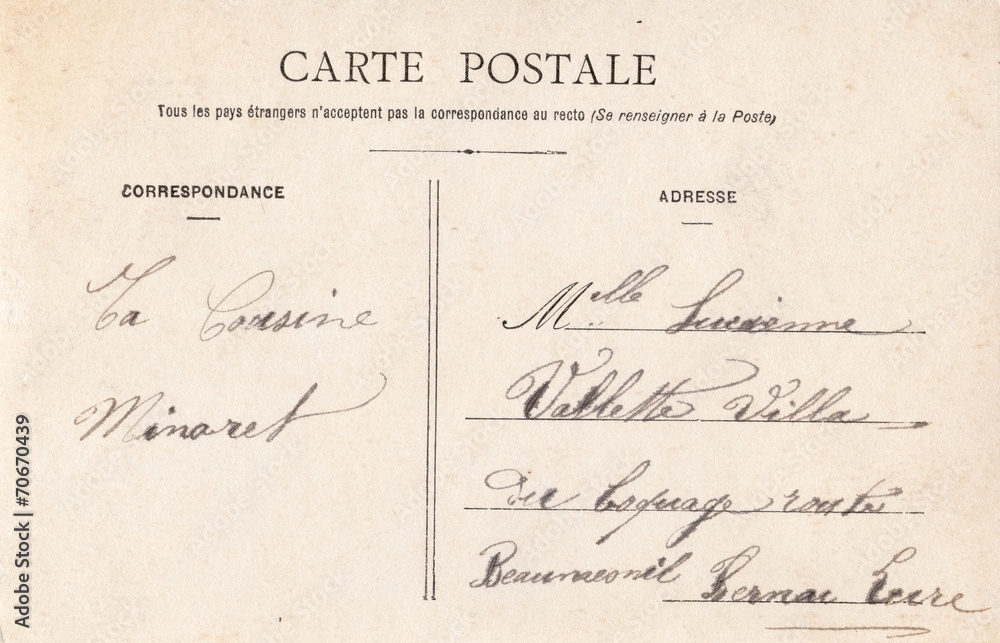 CARTE POSTALE
Tous les pays étrangers n'acceptent pas la correspondance au recto (Se renseigner à la Poste)
CORRESPONDANCE
Ta Cousine
Minaret
ADRESSE
Melle Lucienne
Vallette Villa
Du Coquage route
Beaumesnil Bernai Eure
Adobe Stock | #70670439